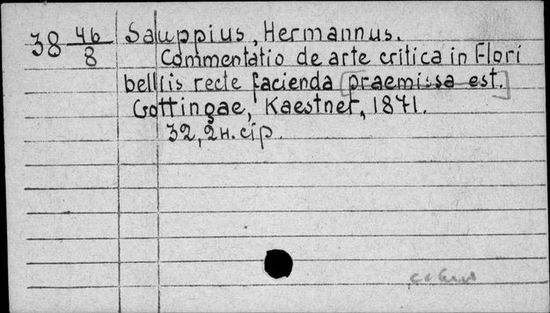 38 46/8 Sauppius, Hermannus.
Commentatio de arte critica in Flori
bellis recte facienda [praemissa est.]
Gottingae, Kaestner, 1871.
32, 2н. стр.